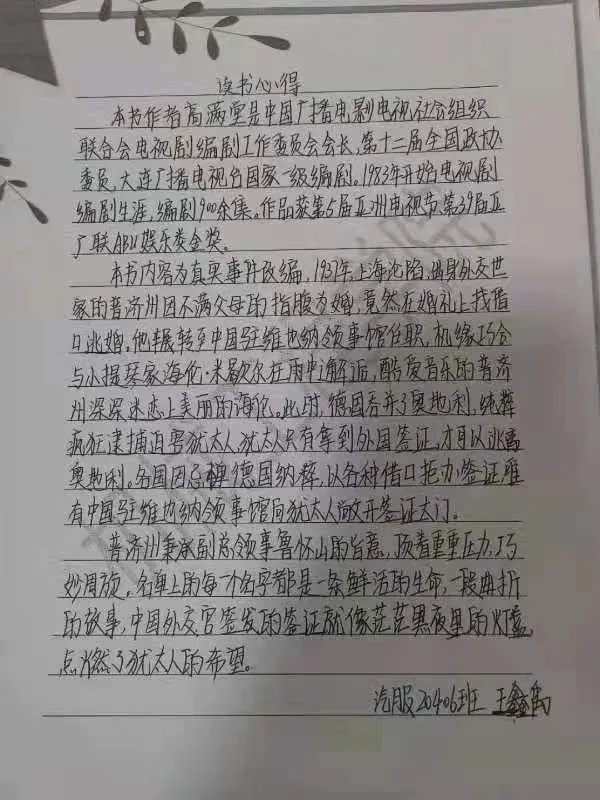 读书心得
本书作者高满堂是中国广播电影电视社会组织
联合会电视剧编剧工作委员会会长,第十二届全国政协
委员,大连广播电视台国家一级编剧。1983年开始电视剧
编剧生涯,编剧900余集。作品获第5届亚洲电视节,第39届亚
广联ABU娱乐类金奖。
本书内容为真实事件改编,1937年,上海沦陷,出身外交世
家的普济州因不满父母的指腹为婚,竟然在婚礼上找借
口逃婚。他辗转至中国驻维也纳领事馆任职,机缘巧合
与小提琴家海伦·米歇尔在雨中邂逅,酷爱音乐的普济
州深深迷恋上美丽的海伦。此时,德国吞并了奥地利,纯粹
疯狂逮捕迫害犹太人,犹太人只有拿到外国签证,才可以逃离
奥地利。各国因忌惮德国纳粹,以各种借口拒办签证,唯
有中国驻维也纳领事馆向犹太人敞开签证大门。
普济州秉承副总领事鲁怀山的旨意,顶着重重压力,巧
妙周旋。名单上的每一个名字都是一条鲜活的生命,一段曲折
的故事,中国外交官签发的签证就像茫茫黑夜里的灯盏,
点燃了犹太人的希望。
汽服20406班 王鑫禹